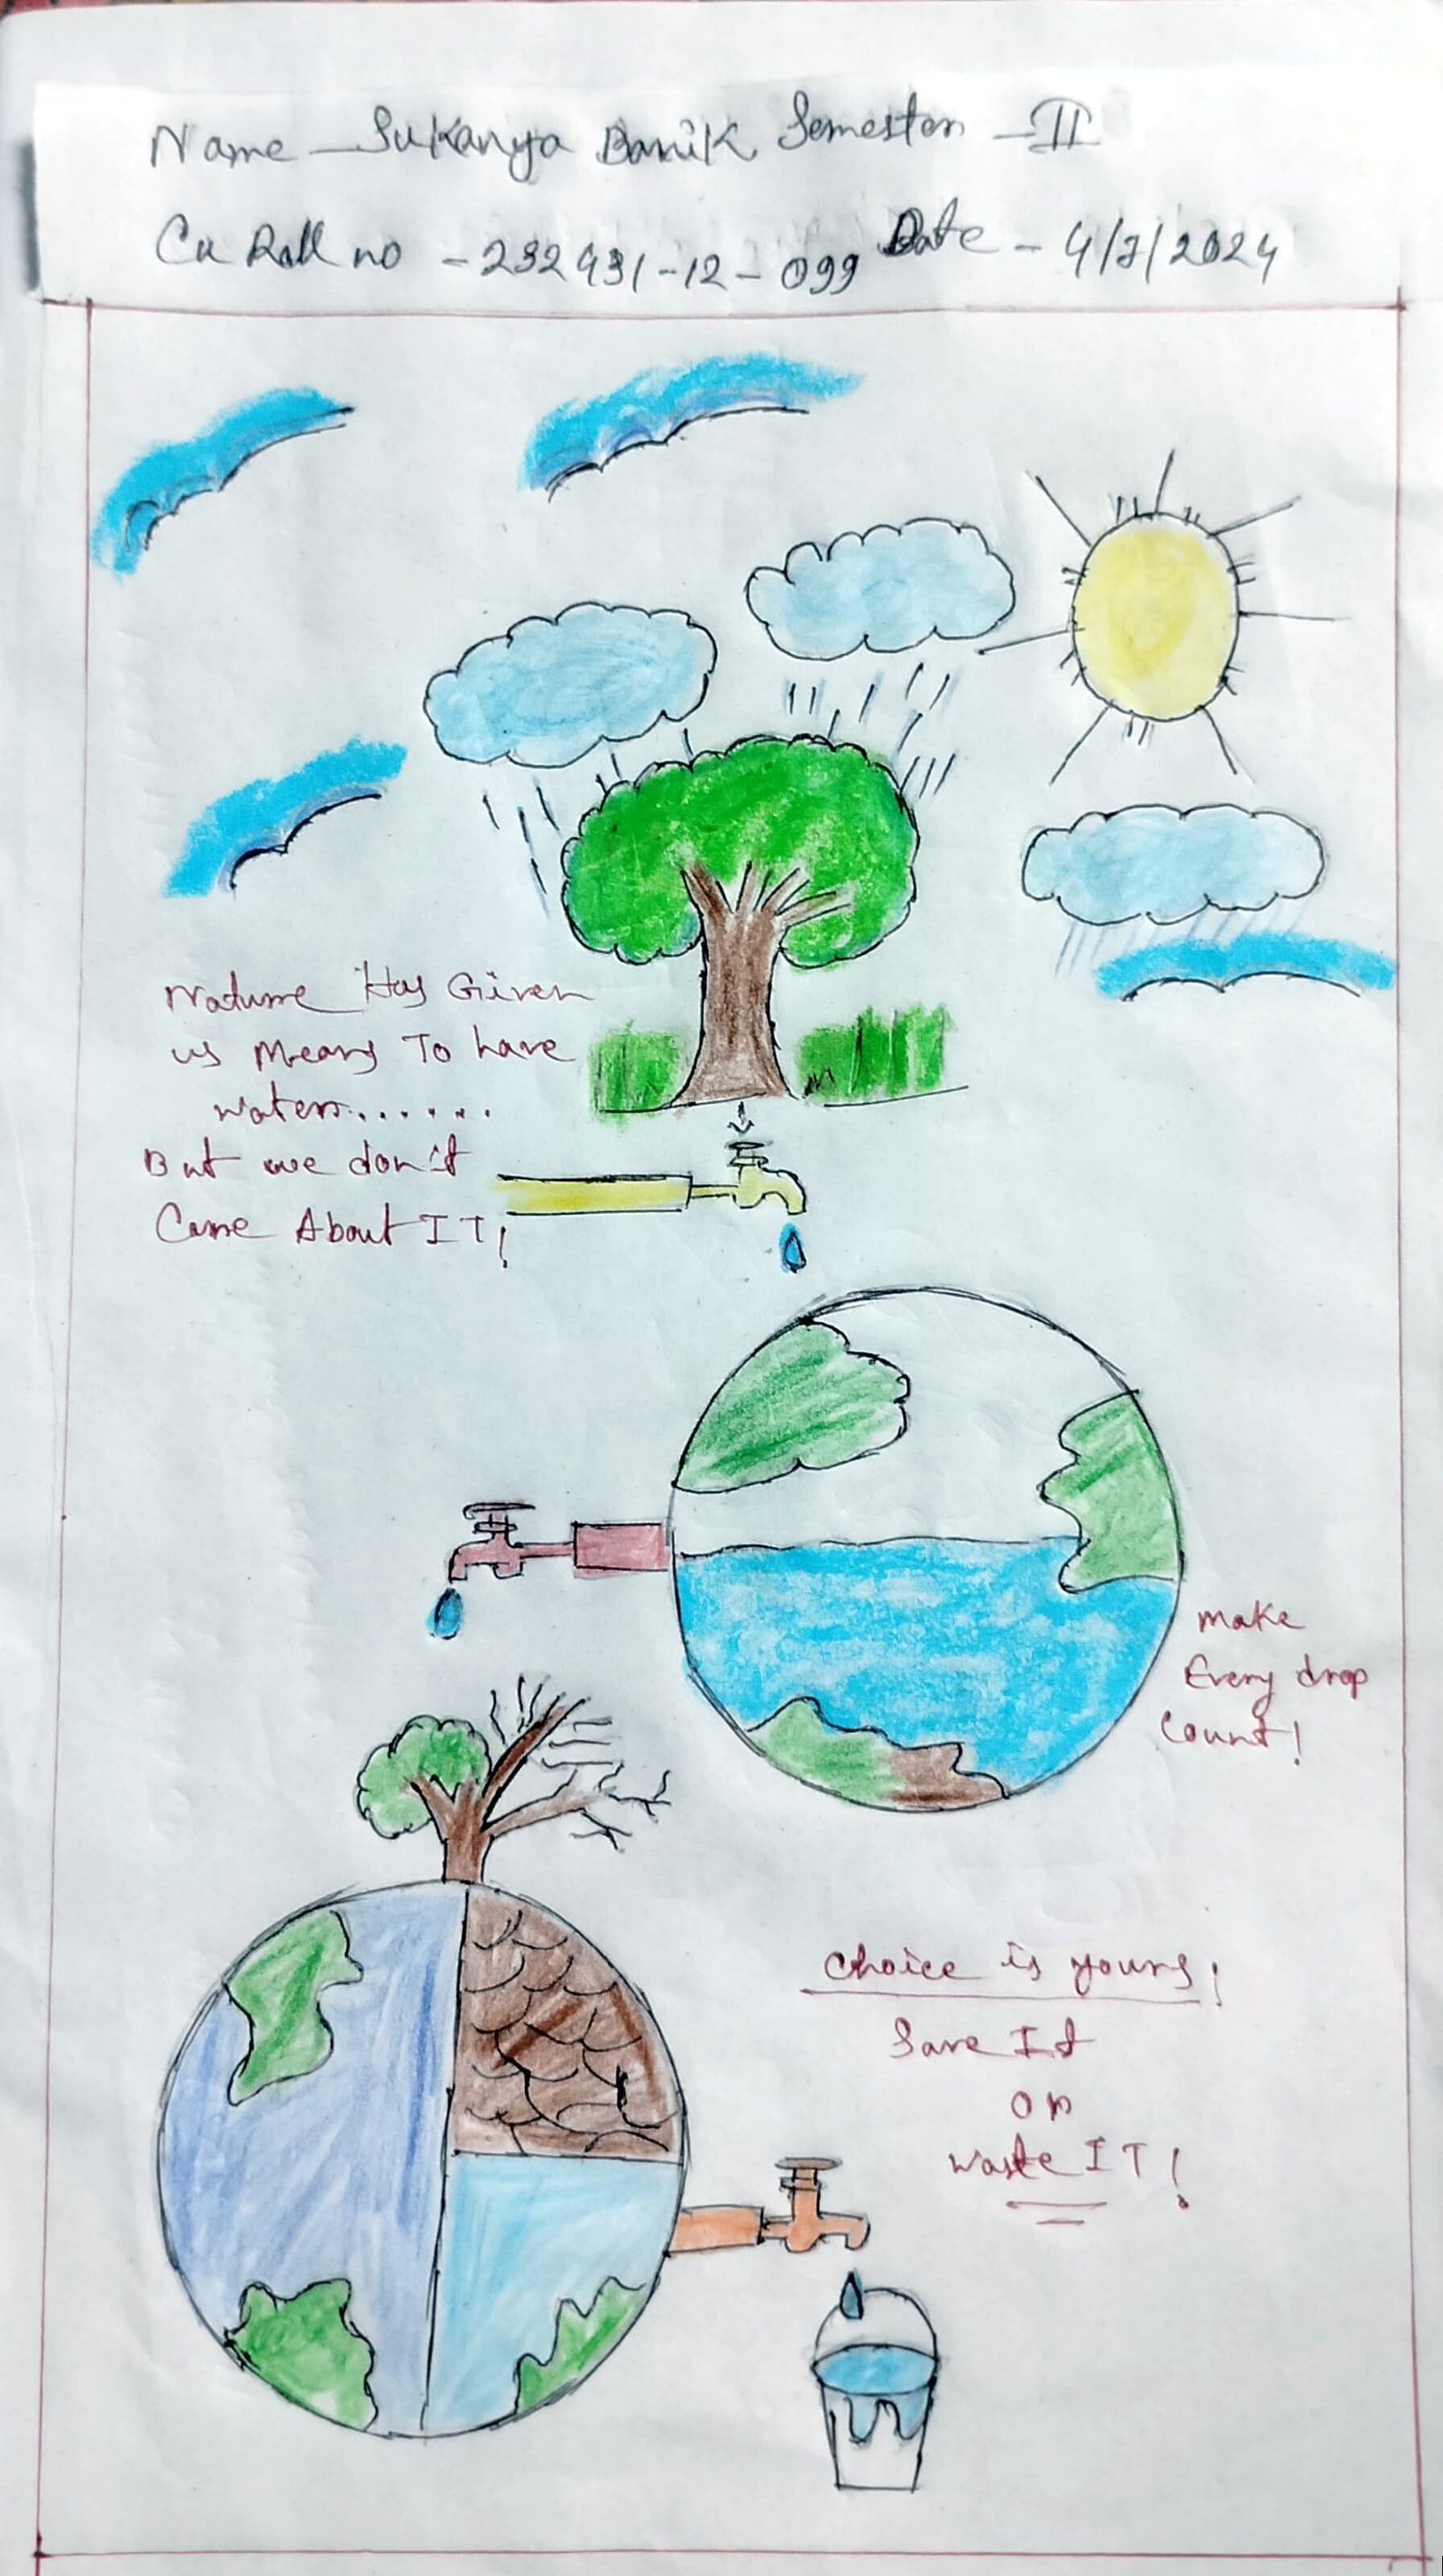 Name - Sukanya Banik Semester - II
Cu Roll no - 232431-12-099 Date - 4/7/2024
Nature Has Given
us Means To have
water.......
But we don't
Care About IT!
make
Every drop
Count!
choice is yours!
Save It
or
waste IT!